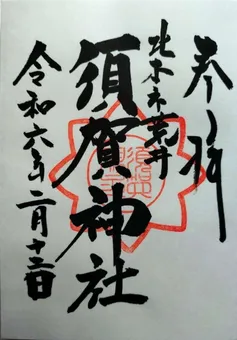 奉拝
北本市荒井
須賀神社
令和六年二月十三日